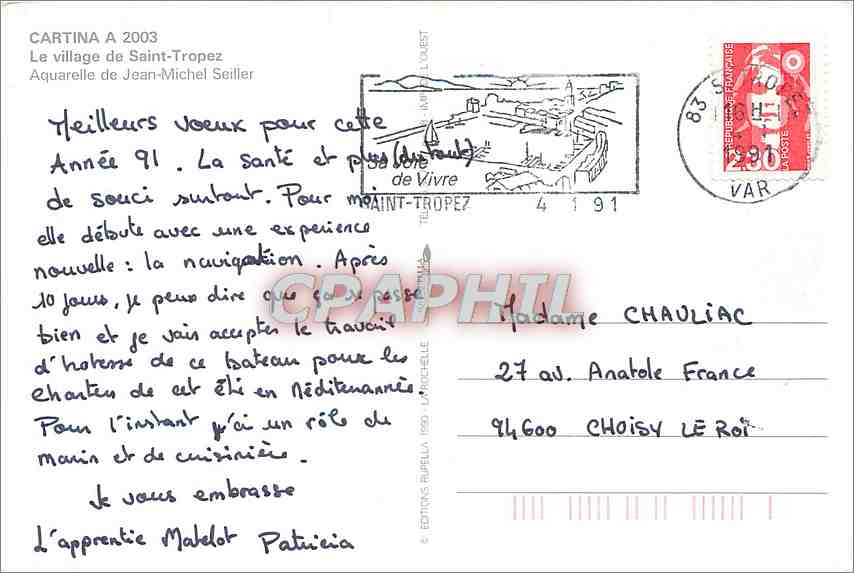 CARTINA A 2003
Le village de Saint-Tropez
Aquarelle de Jean-Michel Seiller
Meilleurs voeux pour cette
Année 91. La santé et plus (du tout)
de souci surtout. Pour moi
elle débute avec une experience
nouvelle : la navigation. Après
10 jours, je peux dire que ça se passe
bien et je vais accepter le travail
d'hotesse de ce bateau pour les
Charters de cet Eté en Méditerannée.
Pour l'instant j'ai un rôle de
marin et de cuisinière.
Je vous embrasse
L'apprentie Matelot Patricia
© EDITIONS RUPELLA 1990 - LA ROCHELLE
L'OUEST
Sa Joie
de Vivre
SAINT-TROPEZ 4 1 91
83 ST TROPEZ
1991
VAR
REPUBLIQUE FRANÇAISE
LA POSTE
2.30
CPAPHIL
Madame CHAULIAC
27 av. Anatole France
94600 CHOISY LE ROI